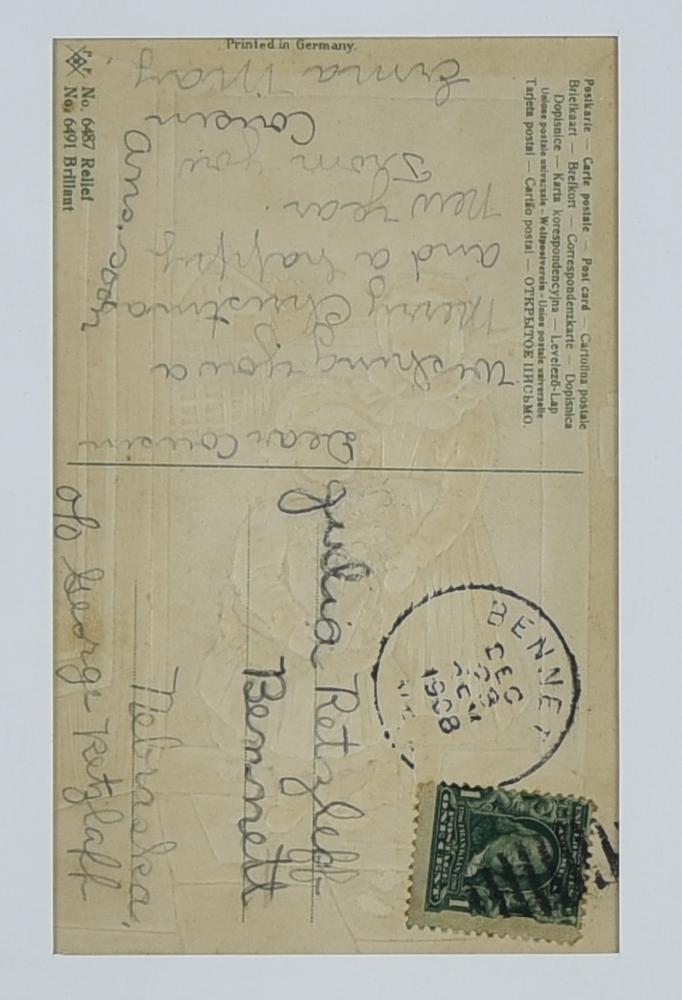 Postkarte — Carte postale — Post card — Cartolina postale
Briefkaart — Brefkort — Correspondenzkarte — Dopisnica
Dopisnice — Karta korespondencyjna — Levelező-Lap
Unione postale universale - Weltpostverein - Union postale universelle
Tarjeta postal — Cartão postal — ОТКРЫТОЕ ПИСЬМО.
Dear Cousin
Wishing you a
Merry Christma
and a happy
new year.
From you
Cousin
Erma May.
Ans. soon
Printed in Germany.
P. F.
No. 6487 Relief
No. 6491 Brillant
BENNET
DEC
1908
ONE CENT
1 1
Julia Retzleff
Bennett
Nebraska,
c/o George Retzlaff